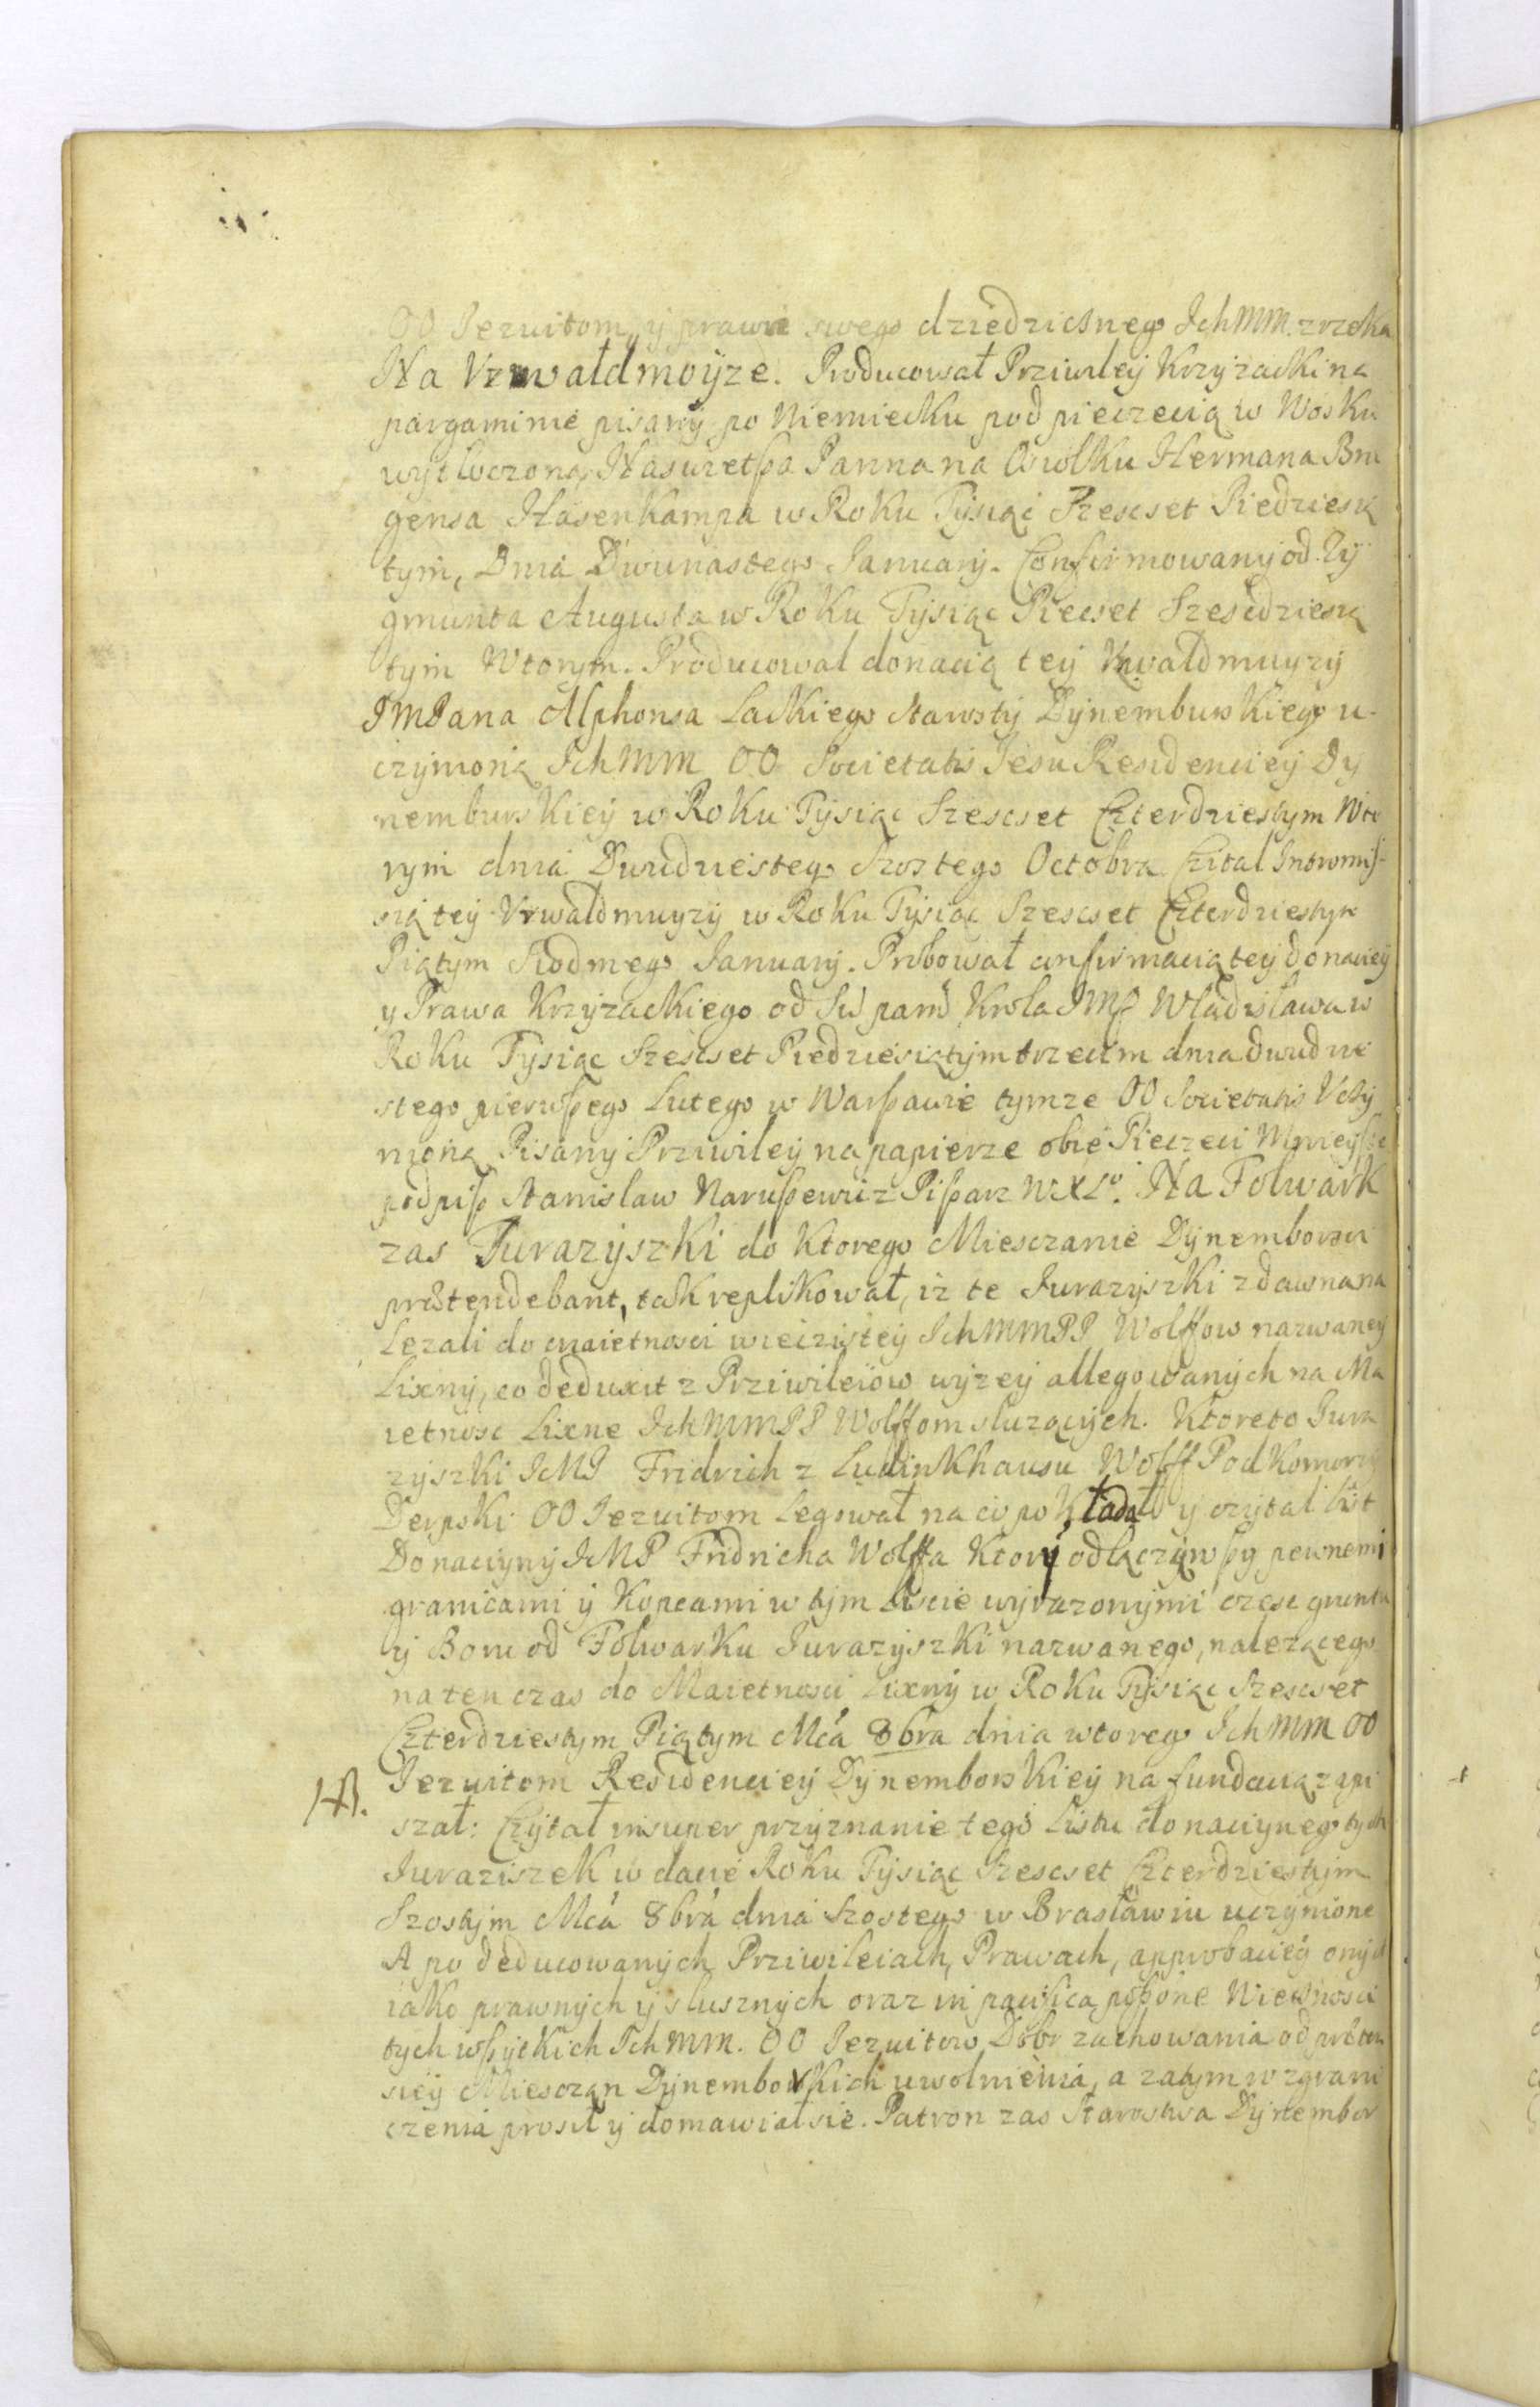 OO Jezuitom y prawa swego dziedzicznego Jch MM. zrzeka
Na Vrwałdmoyze. Producował Prziwiley Krzyżacki na
pargaminie pisany po Niemiecku pod pieczecią w Wosku
wytłoczoną, Naswietsza Panna na Osiołku Hermana Bru
gensa Hasenkampa w Roku Tysiąc Szescset Piedziesią
tym, Dnia Dwunastego January. Confirmowany od Zy
gmunta Augusta w Roku Tysiąc Piecset Szescdziesią
tym Wtorym. Producował donacią tey Vrwałdmuyzy
JmPana Alphonsa Lackiego Starosty Dynemburskiego u-
czynioną Jch MM OO Societatis Jesu Residenciey Dy
nemburskiey w Roku Tysiąc Szescset Czterdziestym Wto
rym dnia Dwudziestego Szostego Octobra Czital Intromis-
sią tey Vrwałdmuyzy w Roku Tysiąc Szescset Czterdziestym
Piątym Siodmego January. Probował confirmacią tey donaciey
y Prawa Krzyżackiego od Sw pami Krola JMP Władisława w
Roku Tysiąc Szescset Piedziesiątym trzecim dnia dwudzie
stego pierwszego Lutego w Warszawie tymze OO Societatis Vczy
nioną Pisany Przwiley na papierze obie Pieczeci Mnieysze
podpis Stanislaw Naruszewicz Pisarz WXLo. Na Folwark
zas Jurazyszki do Ktorego Miesczanie Dynemborscy
prætendebant, tak replikował, iz te Jurazyszki zdawna na
Lezali do maietnosci wieczistey Jch MM PP Wolffow nazwaney
Lixny, co deduxit z Przwileiow wyzey allegowanych na Ma
ietnosc Lixne Jch MM PP Wolffom sluzących. Ktore to Jura
zyszki JeMP Fridrich z Ludinkhausu Wolff Podkomorzy
Derpski OO Jezuitom Legował na co pokładał y czytal List
Donacyiny JeMP Fridricha Wolffa Ktory odłączywszy pewnemi
granicami y Kopcami w tym Liscie wyrazonymi czesc gruntu
y Boru od Folwarku Jurazyszki nazwanego, nalezącego
na ten czas do Maietnosci Lixny w Roku Tysiąc Szescset
Czterdziestym Piątym Mca 8bra dnia wtorego Jch MM OO
Jezuitom Residenciey Dynemborskiey na fundacią zapi
szał: Czytał insuper przyznanie tego Listu donacyinego tych
Juraziszek w dacie Roku Tysiąc Szescset Czterdziestym
Szostym Mca 8bra dnia Szostego w Brasławiu uczynione
A po deducowanych Przwileiach, Prawach, approbaciey onych
iako prawnych y słusznych oraz in
tych wszytkich Jch MM. OO Jezuitow Dobr zachowania od præten
siey Miesczan Dynemborskich uwolnienia, a zatym w zgrani
czenia prosił y domawiał sie. Patron zas Starostwa Dynembor